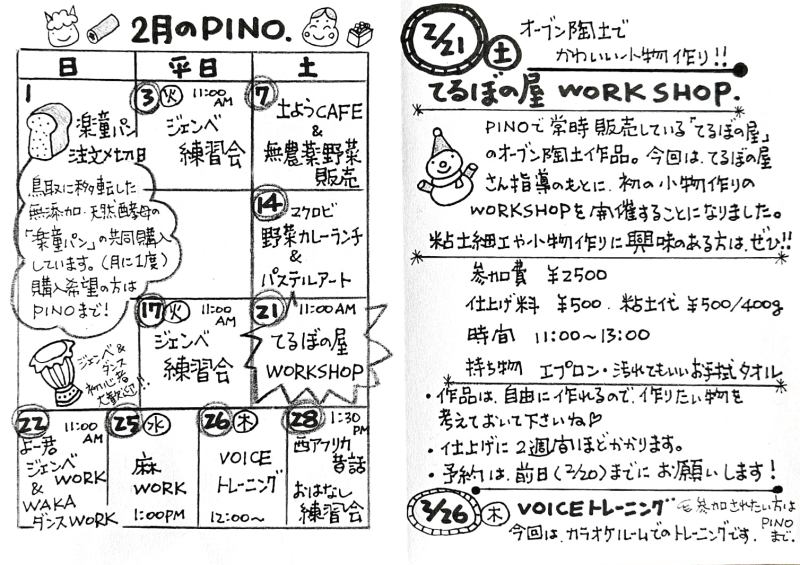 2月のPINO.
日 平日 土
1
楽童パン
注文〆切日
鳥取に移転した
無添加・天然酵母の
「楽童パン」の共同購入
しています。(月に1度)
購入希望の方は
PINOまで!
3 火 11:00 AM
ジェンベ
練習会
7
土ようCAFE
&
無農薬野菜
販売
14
マクロビ
野菜カレーランチ
&
パステルアート
ジェンベ&
ダンス
初心者
大歓迎!!
17 火 11:00 AM
ジェンベ
練習会
21 11:00AM
てるぼの屋
WORKSHOP
22 11:00 AM
よー君
ジェンベWORK
&
WAKA
ダンスWORK
25 水
麻
WORK
1:00PM
26 木
VOICE
トレーニング
12:00〜
28 1:30 PM
西アフリカ
昔話
おはなし
練習会
2/21 土 オーブン陶土で
かわいい小物作り!!
てるぼの屋 WORKSHOP.
PINOで常時販売している「てるぼの屋」
のオーブン陶土作品。今回は、てるぼの屋
さん指導のもとに、初の小物作りの
WORKSHOPを開催することになりました。
粘土細工や小物作りに興味のある方は、ぜひ!!
参加費 ¥2500
仕上げ料 ¥500. 粘土代 ¥500/400g
時間 11:00〜13:00
持ち物 エプロン・汚れてもいいお手拭タオル
・作品は、自由に作れるので、作りたい物を
考えておいて下さいね♡
・仕上げに2週間ほどかかります。
・予約は、前日(2/20)までにお願いします!
2/26 木 VOICEトレーニング 参加されたい方は
PINO
まで。
今回は、カラオケルームでのトレーニングです。